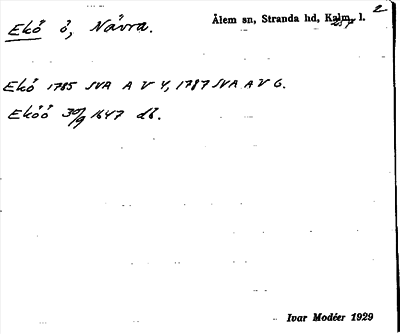 2
Ekö ö, Norra. Ålem sn, Stranda hd, Kalm. l.
Ekö 1785 SVA A V 4, 1787 SVA A V 6.
Eköö 30/9 1647 db.
Ivar Modéer 1929